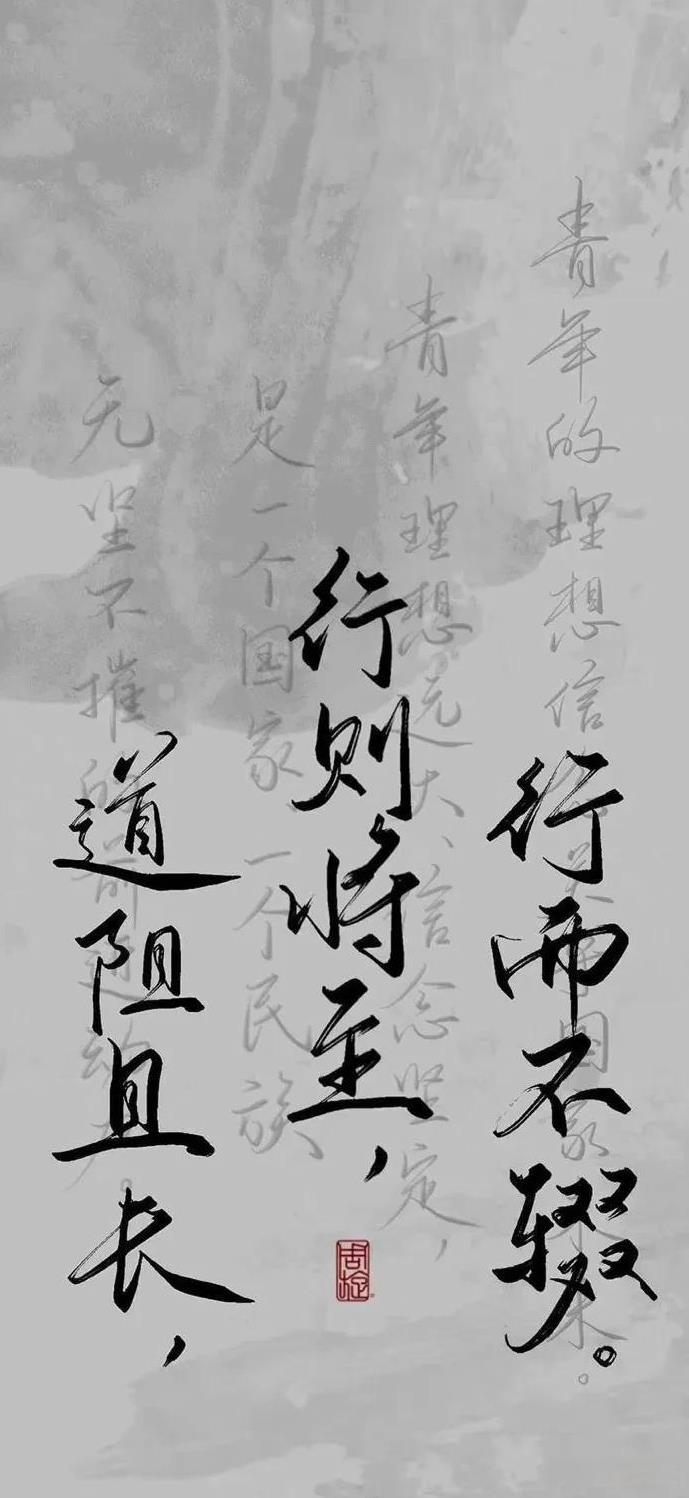 道阻且长，
行则将至，
行而不辍。
青年的理想信念关乎国家未来。
青年理想远大、信念坚定，
是一个国家 一个民族
无坚不摧的前进动力。